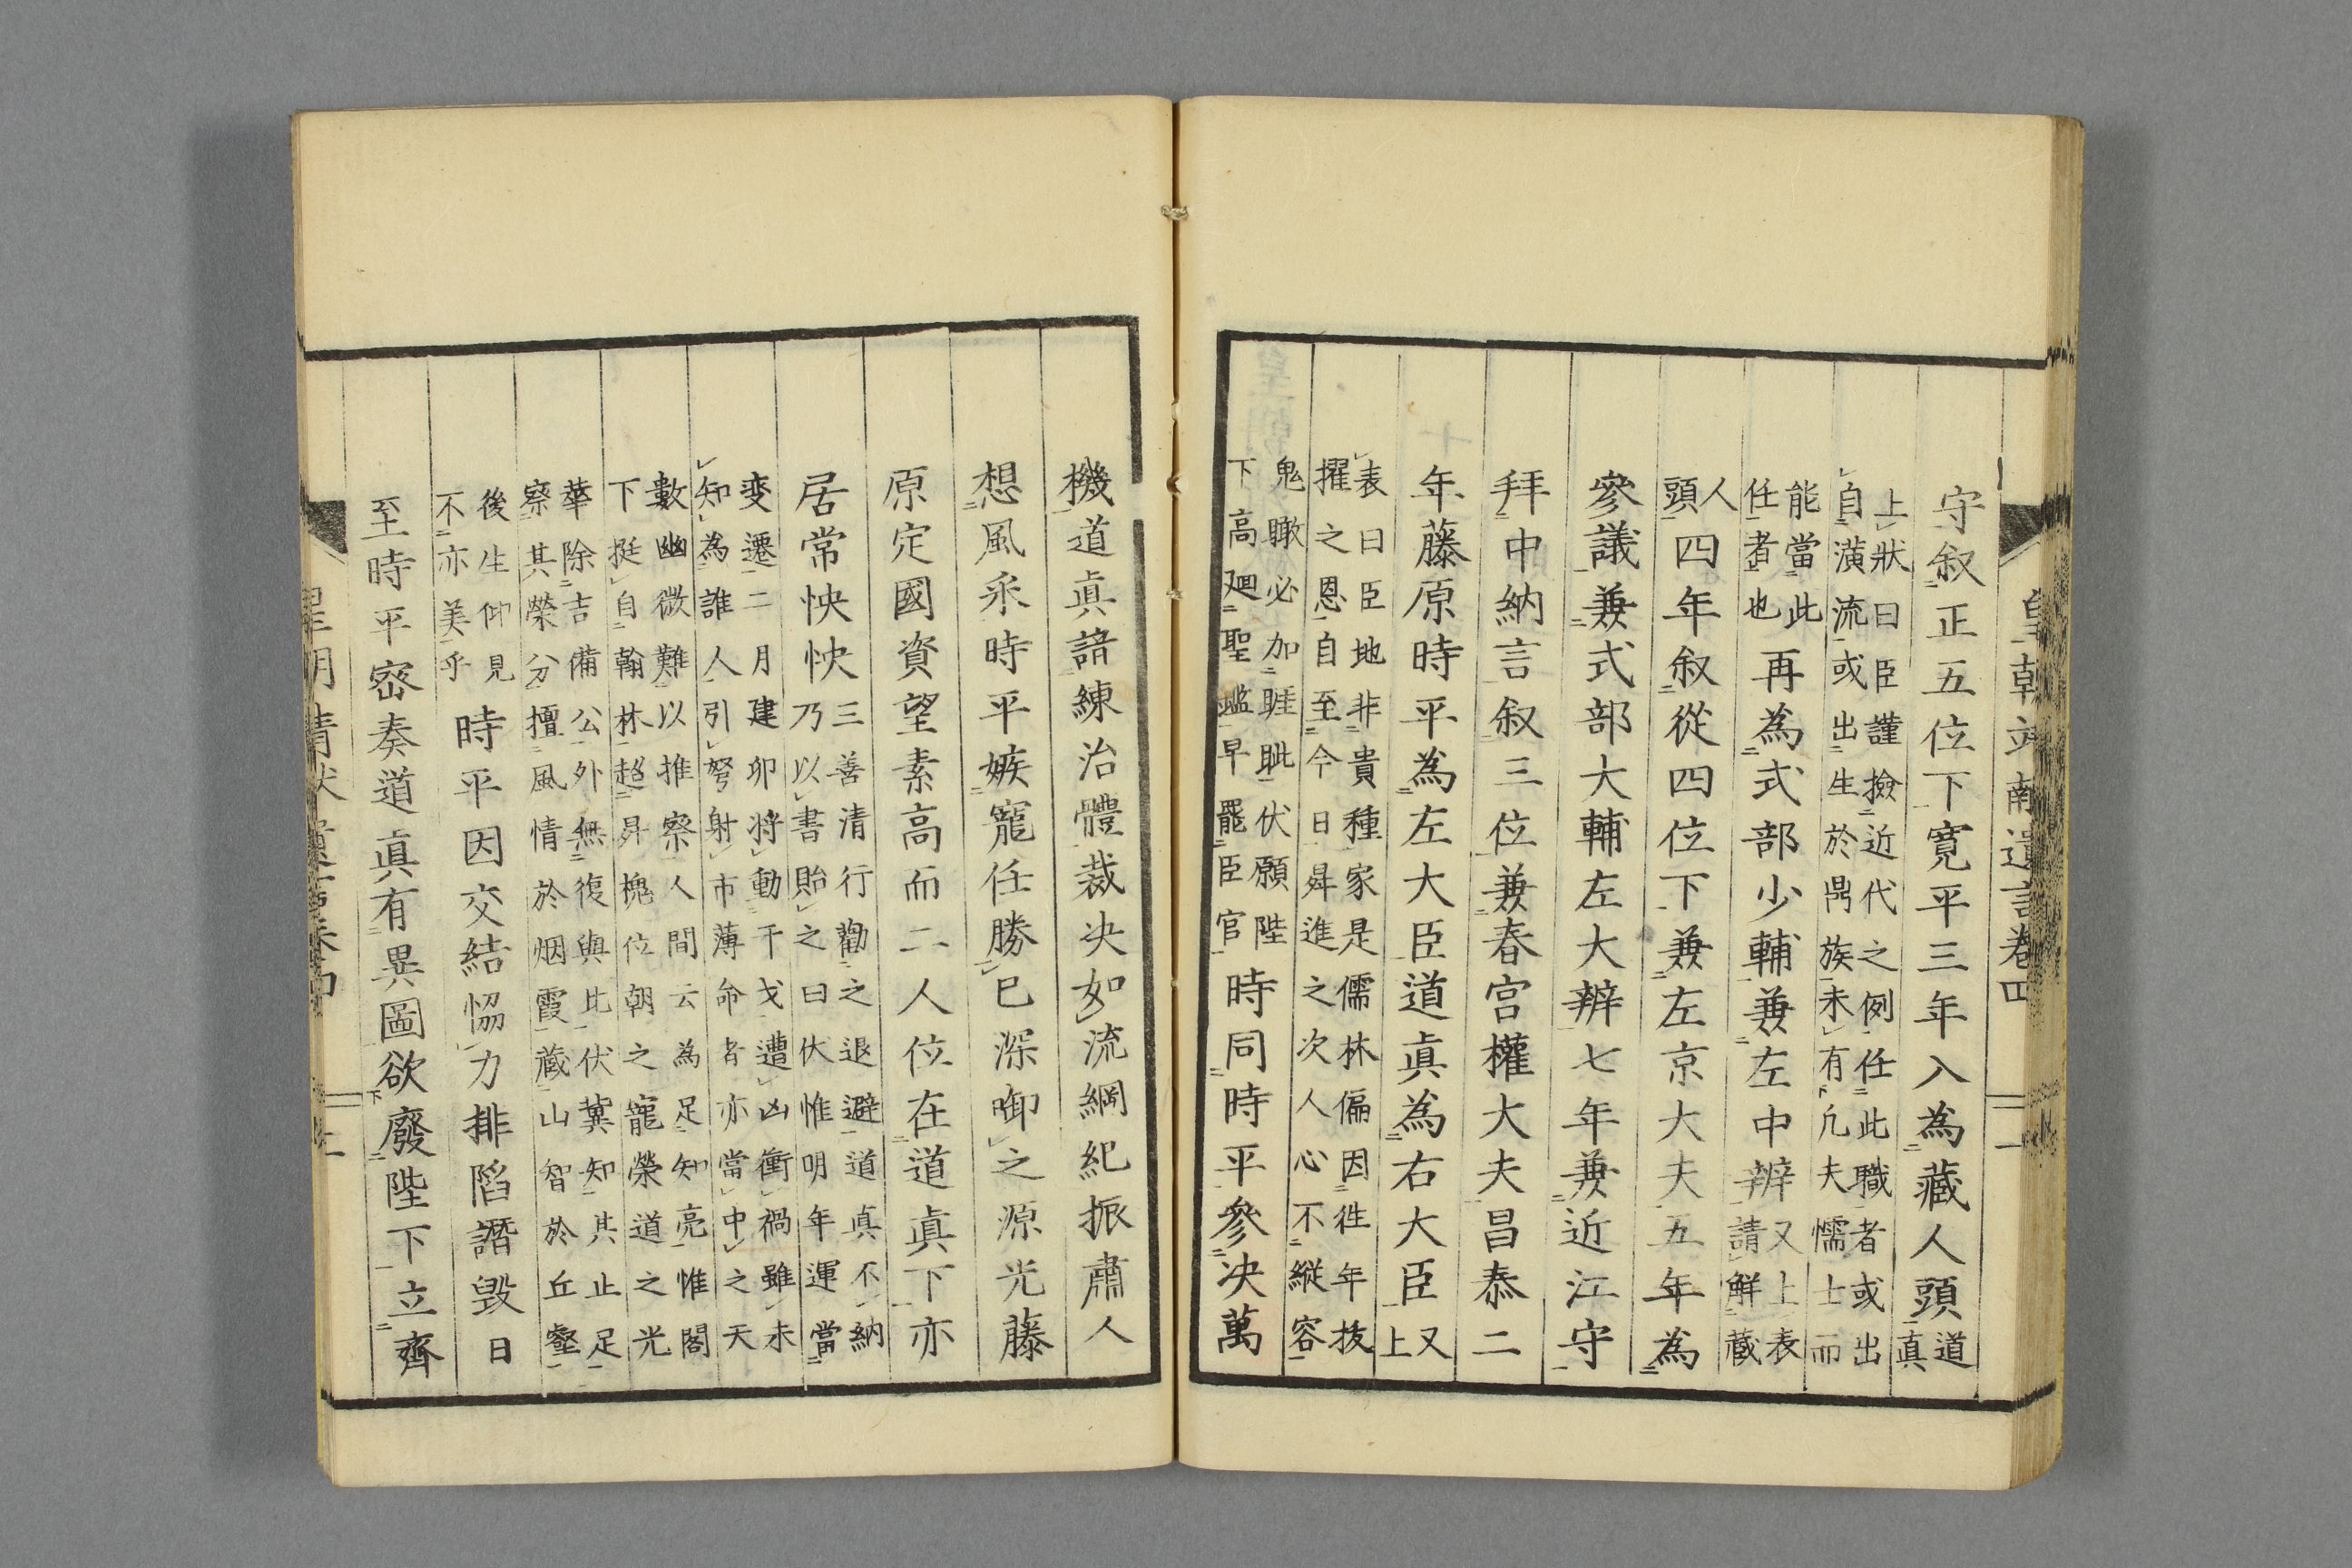 皇朝靖獻遺言卷四 一
守叙正五位下寛平三年入為藏人頭道
真
上狀曰臣謹撿近代之例任此職者或出
自潢流或出生於鼎族未有凢夫懦士而
能當此
任者也再為式部少輔兼左中辨又上表
請鮮藏
人
頭四年叙從四位下兼左京大夫五年為
參議兼式部大輔左大辨七年兼近江守
拜中納言叙三位兼春宮權大夫昌泰二
年藤原時平為左大臣道眞為右大臣又
上
表曰臣地非貴種家是儒林偏因徃年抜
擢之恩自至今日昇進之次人心不縦容
鬼瞰必加睚眦伏願陛
下高廻聖鑑早罷臣官時同時平參决萬
機道眞諳練治體裁决如流綱紀振肅人
想風釆時平嫉寵任勝已深啣之源光藤
原定國資望素高而二人位在道眞下亦
居常怏怏三善清行勸之退避道真不納
乃以書貽之曰伏惟明年運當
变遷二月建卯将動干戈遭凶衝禍雖未
知為誰人引弩射市薄命者亦當中之天
數幽微難以推察人間云為足知亮惟閤
下挺自翰林超昇槐位朝之寵榮道之光
華除吉備公外無復與比伏冀知其止足
察其榮分擅風情於烟霞藏山智於丘壑
後生仰見
不亦美乎時平因交結恊力排陷譖毀日
至時平密奏道眞有異圖欲廢陛下立齊